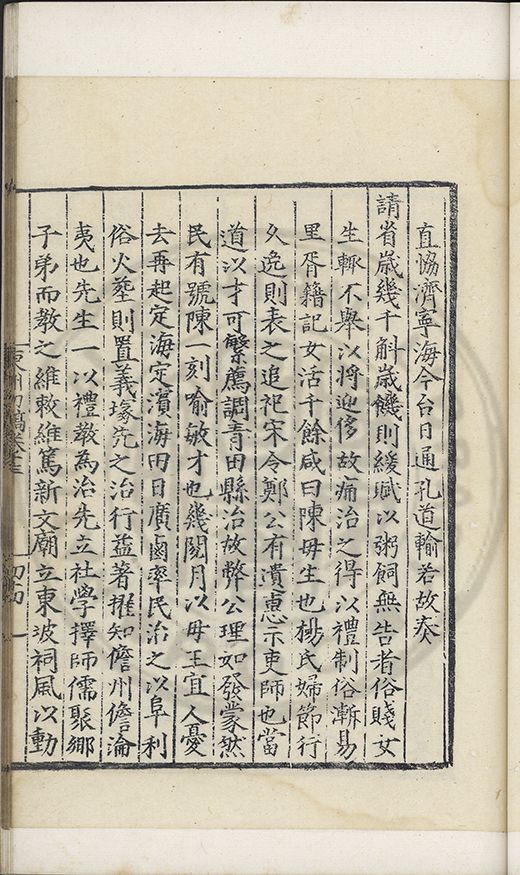 直恊濟寧海今台日通孔道輸若故奏
請省歲幾千斛歲饑則緩賦以粥飼無告者俗賤女
生輙不舉以將迎侈故痛治之得以禮制俗漸易
里胥籍記女活千餘咸曰陳毋生也楊氏婦節行
久逸則表之追祀宋令鄭公有潰慮示吏師也當
道以才可繁薦調青田縣治故弊公理如發蒙然
民有號陳一刻喻敏才也幾閱月以毋王宜人憂
去再起定海定濱海田日廣鹵率民治之以阜利
俗火塟則置義塚先之治行益著擢知儋州儋淪
夷也先生一以禮教為治先立社學擇師儒聚鄉
子弟而教之維敕維篤新文廟立東坡祠風以動
東州初稿卷之三